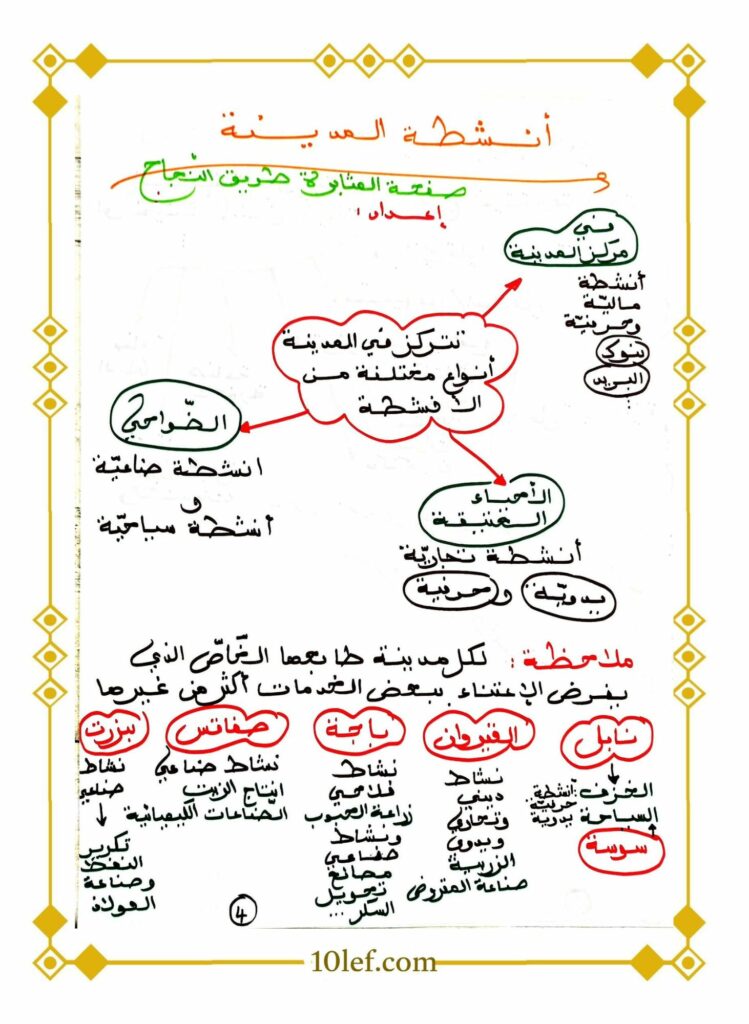 أنشطة المدينة
صفحة المثابرة طريق النجاح
إعداد :
في
مركز المدينة
أنشطة
مالية
وحرفية
بنوك
البريد
تتركز في المدينة
أنواع مختلفة من
الأنشطة
الضّواحي
انشطة صناعيّة
و
أنشطة سياحيّة
الأحياء
العتيقة
أنشطة تجاريّة
يدويّة و حرفية
ملاحظة : لكل مدينة طابعها الخّاصّ الذي
يفرض الإعتناء ببعض الخدمات أكثر من غيرها
نابل
الخزف
السياحة
أنشطة
حرفية
يدوية
سوسة
القيروان
نشاط
ديني
وتجاري
ويدوي
الزربية
صناعة المقروض
باجة
نشاط
فلاحي
زراعة الحبوب
ونشاط
صناعي
مصانع
تحويل
السكر ...
صفاقس
نشاط صناعي
انتاج الزيت
الصّناعات الكيميائية
بنزرت
نشاط
صناعي
تكرير
النفط
وصناعة
الفولاذ
4
10lef.com